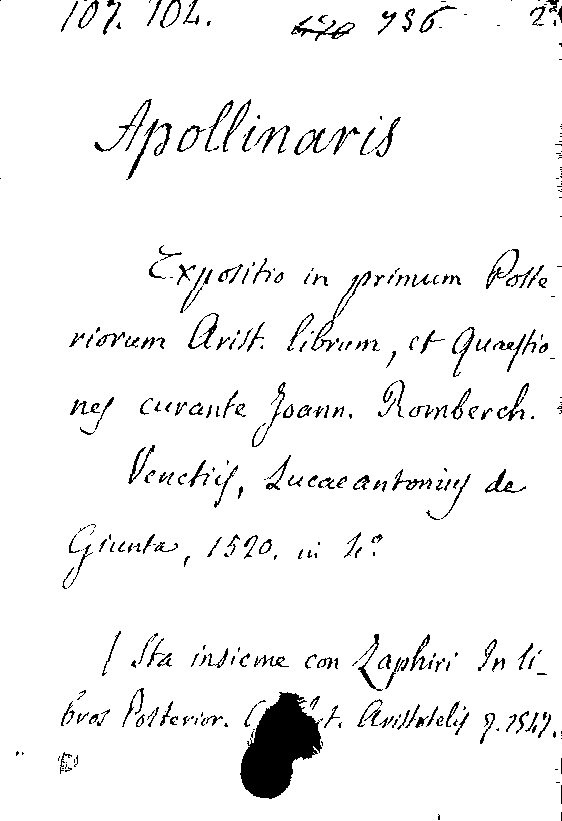 107. 104. 736 2ª
Apollinaris
Expositio in primum Poste
riorum Arist. librum, et Quaestio-
nes curante Joann. Romberch.
Venetiis, Lucaeantonius de
Giunta, 1520. in 4º
( Sta insieme con Zaphiri In li-
bros Posterior. Aristotelis 7. 1547.